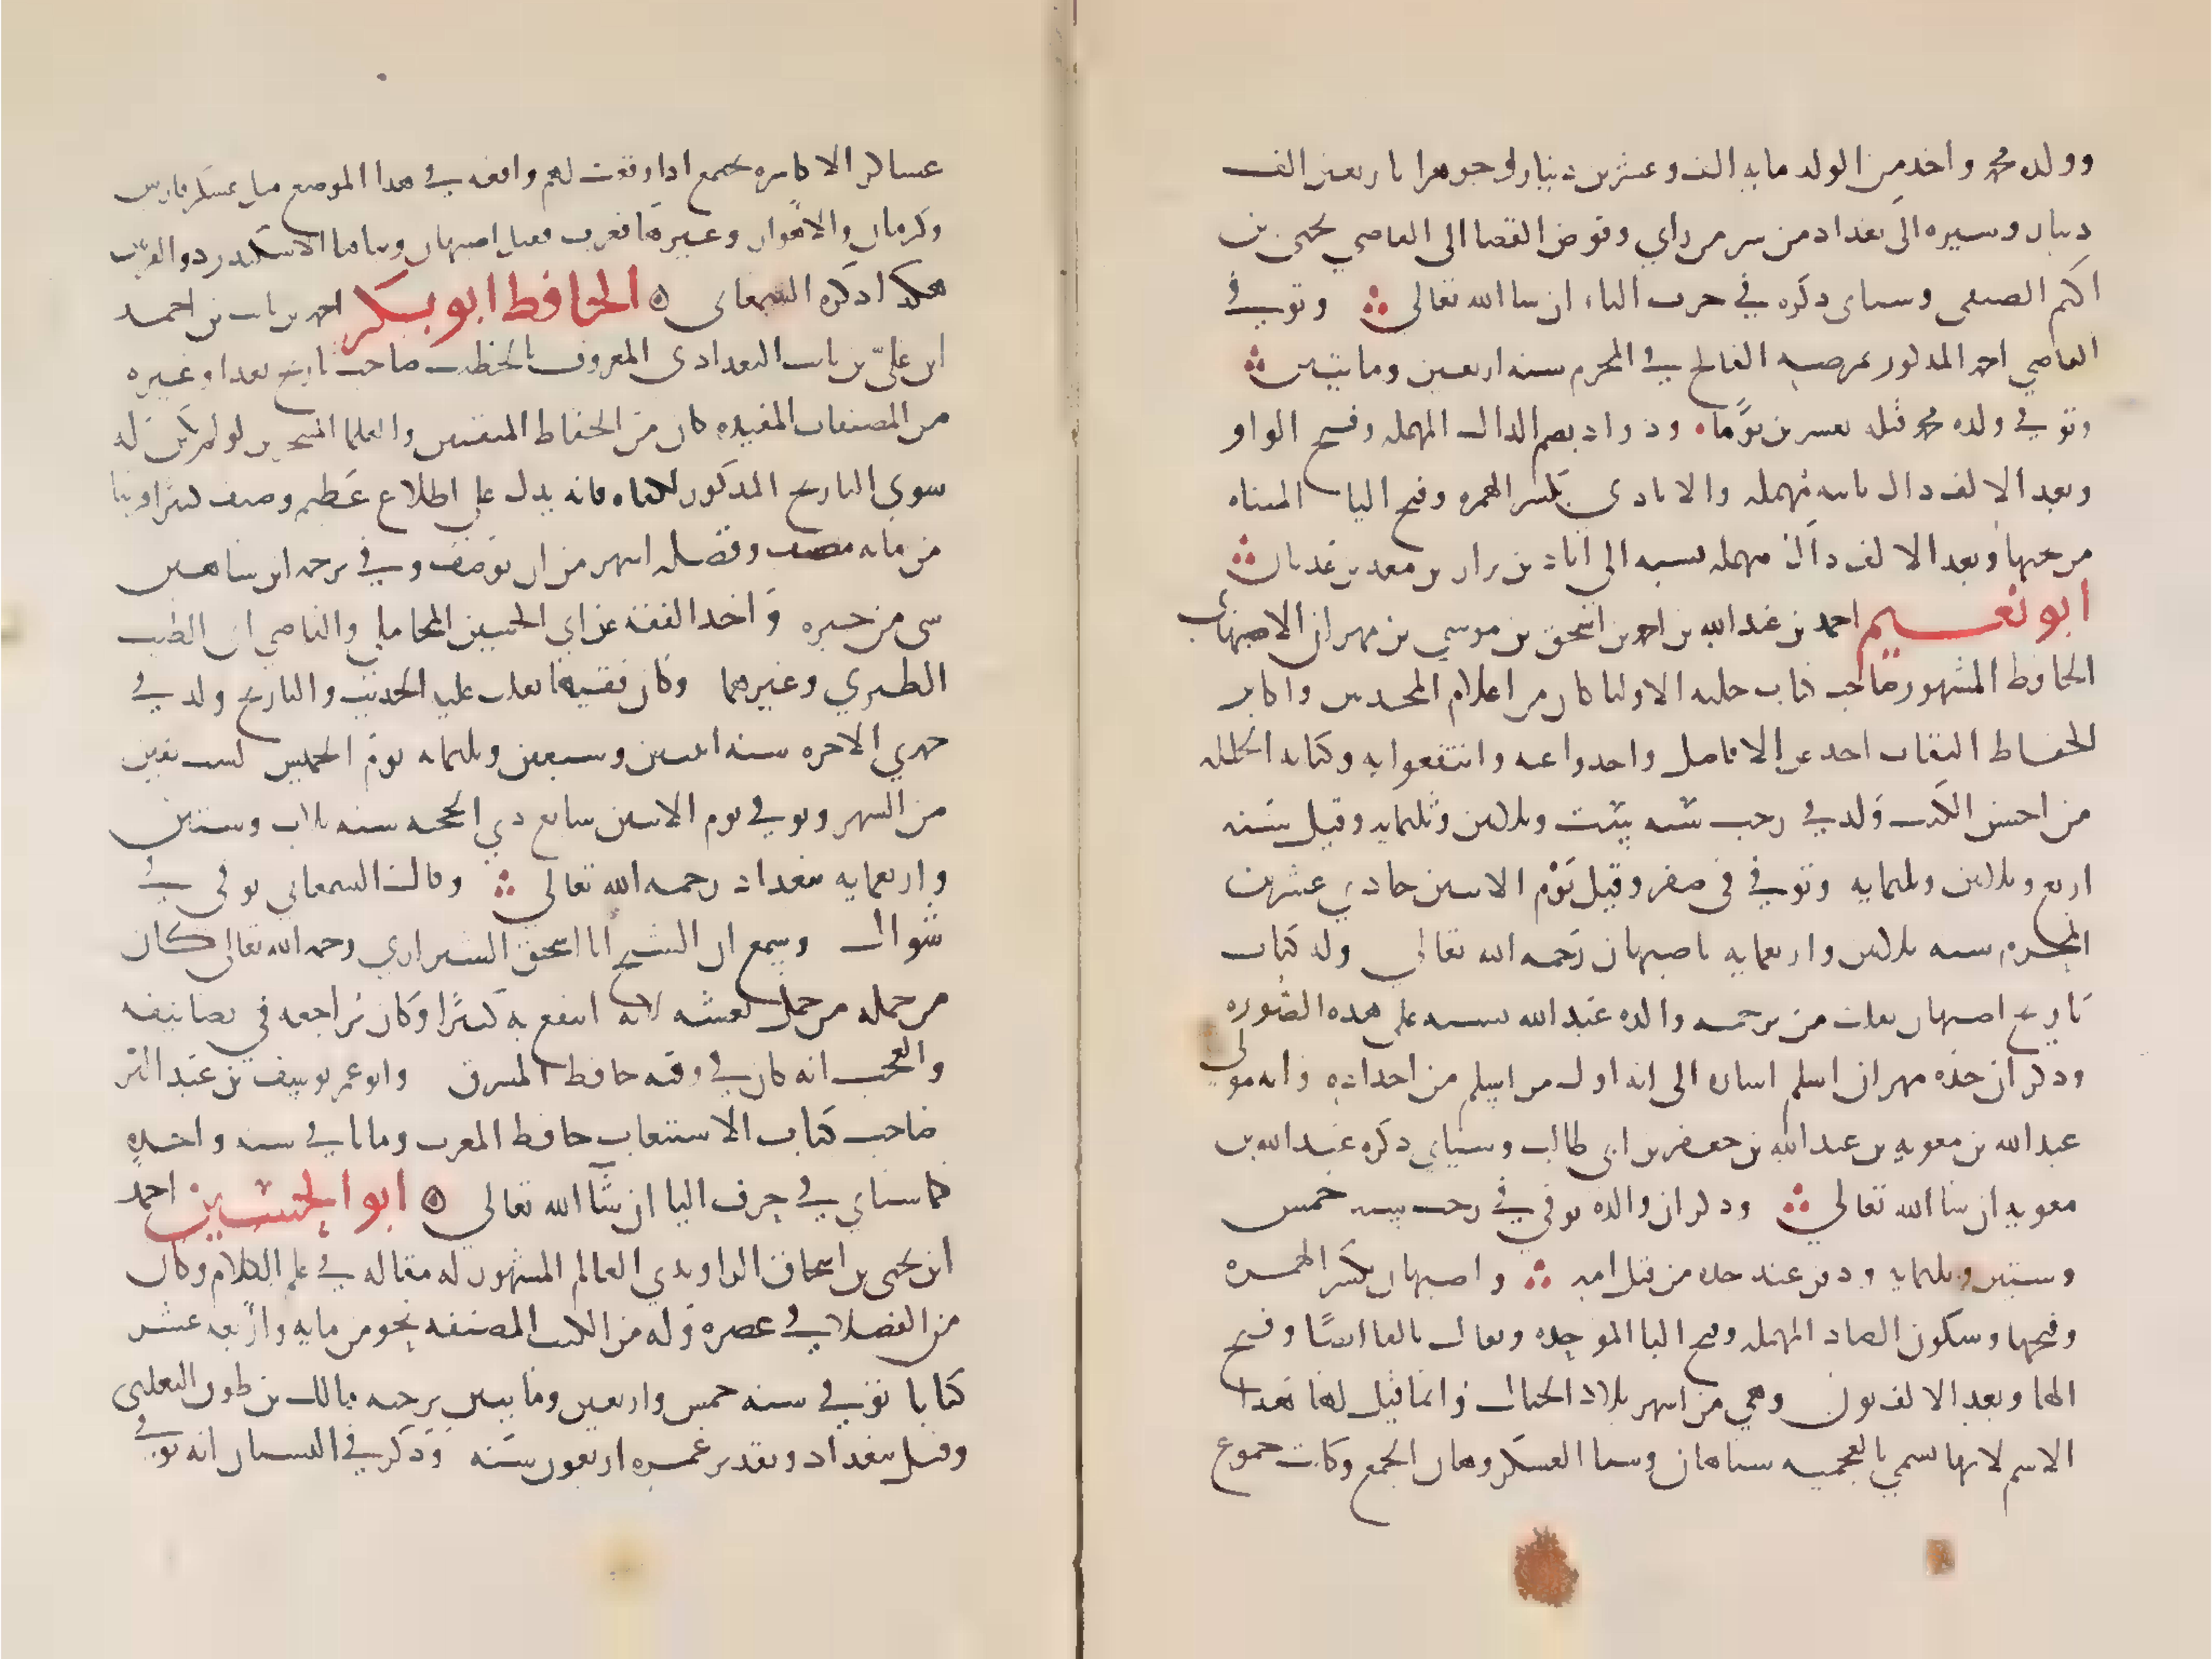 وولده محمد واخذ من الولد مايه الف وعشرين دينار وجوهرا باربعين الف
دينار وسيره الى بغداد من سر من راي وفوض القضا الى القاضي يحيى بن
اكثم الصيفى وسياى ذكره في حرف الياء ان شا الله تعالى وتوفي
القاضي احمد المذكور بمرضه الفالج في المحرم سنه اربعين ومايتين
وتوفي ولده محمد قبله بعشرين يوما ودواد بضم الدال المهمله وفتح الواو
وبعد الالف دال ثانيه مهمله والايادي بكسر الهمزه وفتح اليا المثناه
من تحتها وبعد الالف دال مهمله نسبه الى اياد بن نزار بن معد بن عدنان
ابو نعيم احمد بن عبد الله بن احمد بن اسحق بن موسي بن مهران الاصبهاني
الحافظ المشهور صاحب كتاب حليه الاوليا كان من اعلام المحدثين واكابر
الحفاظ الثقات اخذ عن الافاضل واخذوا عنه وانتفعوا به وكتابه الحليه
من احسن الكتب ولد في رجب سنه ست وثلاثين وثلثمايه وقيل سنه
اربع وثلاثين وثلثمايه وتوفي فى صفر وقيل يوم الاثنين حادي عشرين
المحرم سنه ثلاثين واربعمايه باصبهان رحمه الله تعالى وله كتاب
تاريخ اصبهان نقلت من ترجمه والده عبد الله نسبه على هذه الصوره
وذكر ان جده مهران اسلم اشاره الى انه اول من اسلم من اجداده وانه مولى
عبد الله بن معويه بن عبد الله بن جعفر بن ابى طالب وسياي ذكره عبد الله بن
معويه ان شا الله تعالى وذكر ان والده توفي في رجب سنه خمس
وستين وثلثمايه ودفن عند جده من قبل امه واصبهان بكسر الهمزه
وفتحها وسكون الصاد المهمله وفتح البا الموحده ويقال بالفا ايضا وفتح
الها وبعد الالف نون وهي من اشهر بلاد الجبال وانما قيل لها هذا
الاسم لانها تسمي بالعجميه سباهان وسبا العسكر وهان الجمع وكانت جموع
عساكر الاكاسره تجمع اذا وقعت لهم واقعه في هذا الموضع مثل عسكر فارس
وكرمان والاهواز وغيرها فعرب فقيل اصبهان وبناها الاسكندر ذو القرنين
هكذا ذكره السمعانى الحافظ ابو بكر احمد بن ثابت بن احمد
ابن علي بن ثابت البغدادى المعروف بالخطيب صاحب تاريخ بغداد وغيره
من المصنفات المفيده كان من الحفاظ المتقنين والعلما المتبحرين لو لم يكن له
سوى التاريخ المذكور لكفاه فانه يدل على اطلاع عظيم وصنف كثيرا قريبا
من مايه مصنف وفضله اشهر من ان يوصف وفي ترجمه ابن شاهين
شى من خبره واخذ الفقه عن ابي الحسين المحاملي والقاضي ابى الطيب
الطبري وغيرهما وكان فقيها فغلب عليه الحديث والتاريخ ولد في
جمدي الاخره سنه اثنتين وسبعين وثلثمايه يوم الخميس لست بقين
من الشهر وتوفي يوم الاثنين سابع ذي الحجه سنه ثلاث وستين
واربعمايه ببغداد رحمه الله تعالى وقال السمعاني توفى في
شوال وسمع ان الشيخ ابا اسحق الشيرازي رحمه الله تعالى كان
من جمله من حمل نعشه لانه انتفع به كثيرا وكان يراجعه في تصانيفه
والعجب انه كان في وقته حافظ المشرق وابو عمر يوسف بن عبد البر
صاحب كتاب الاستيعاب حافظ المغرب وماتا في سنه واحده
كما سياي في حرف اليا ان شا الله تعالى ابو الحسين احمد
ابن يحيى بن اسحاق الراوندي العالم المشهور له مقاله في علم الكلام وكان
من الفضلا في عصره وله من الكتب المصنفه نحو من مايه واربعه عشر
كتابا توفي سنه خمس واربعين ومايتين برحبه مالك بن طوق الثعلبى
وقيل ببغداد وتقدير عمره اربعون سنه وذكر في البستان انه توفي